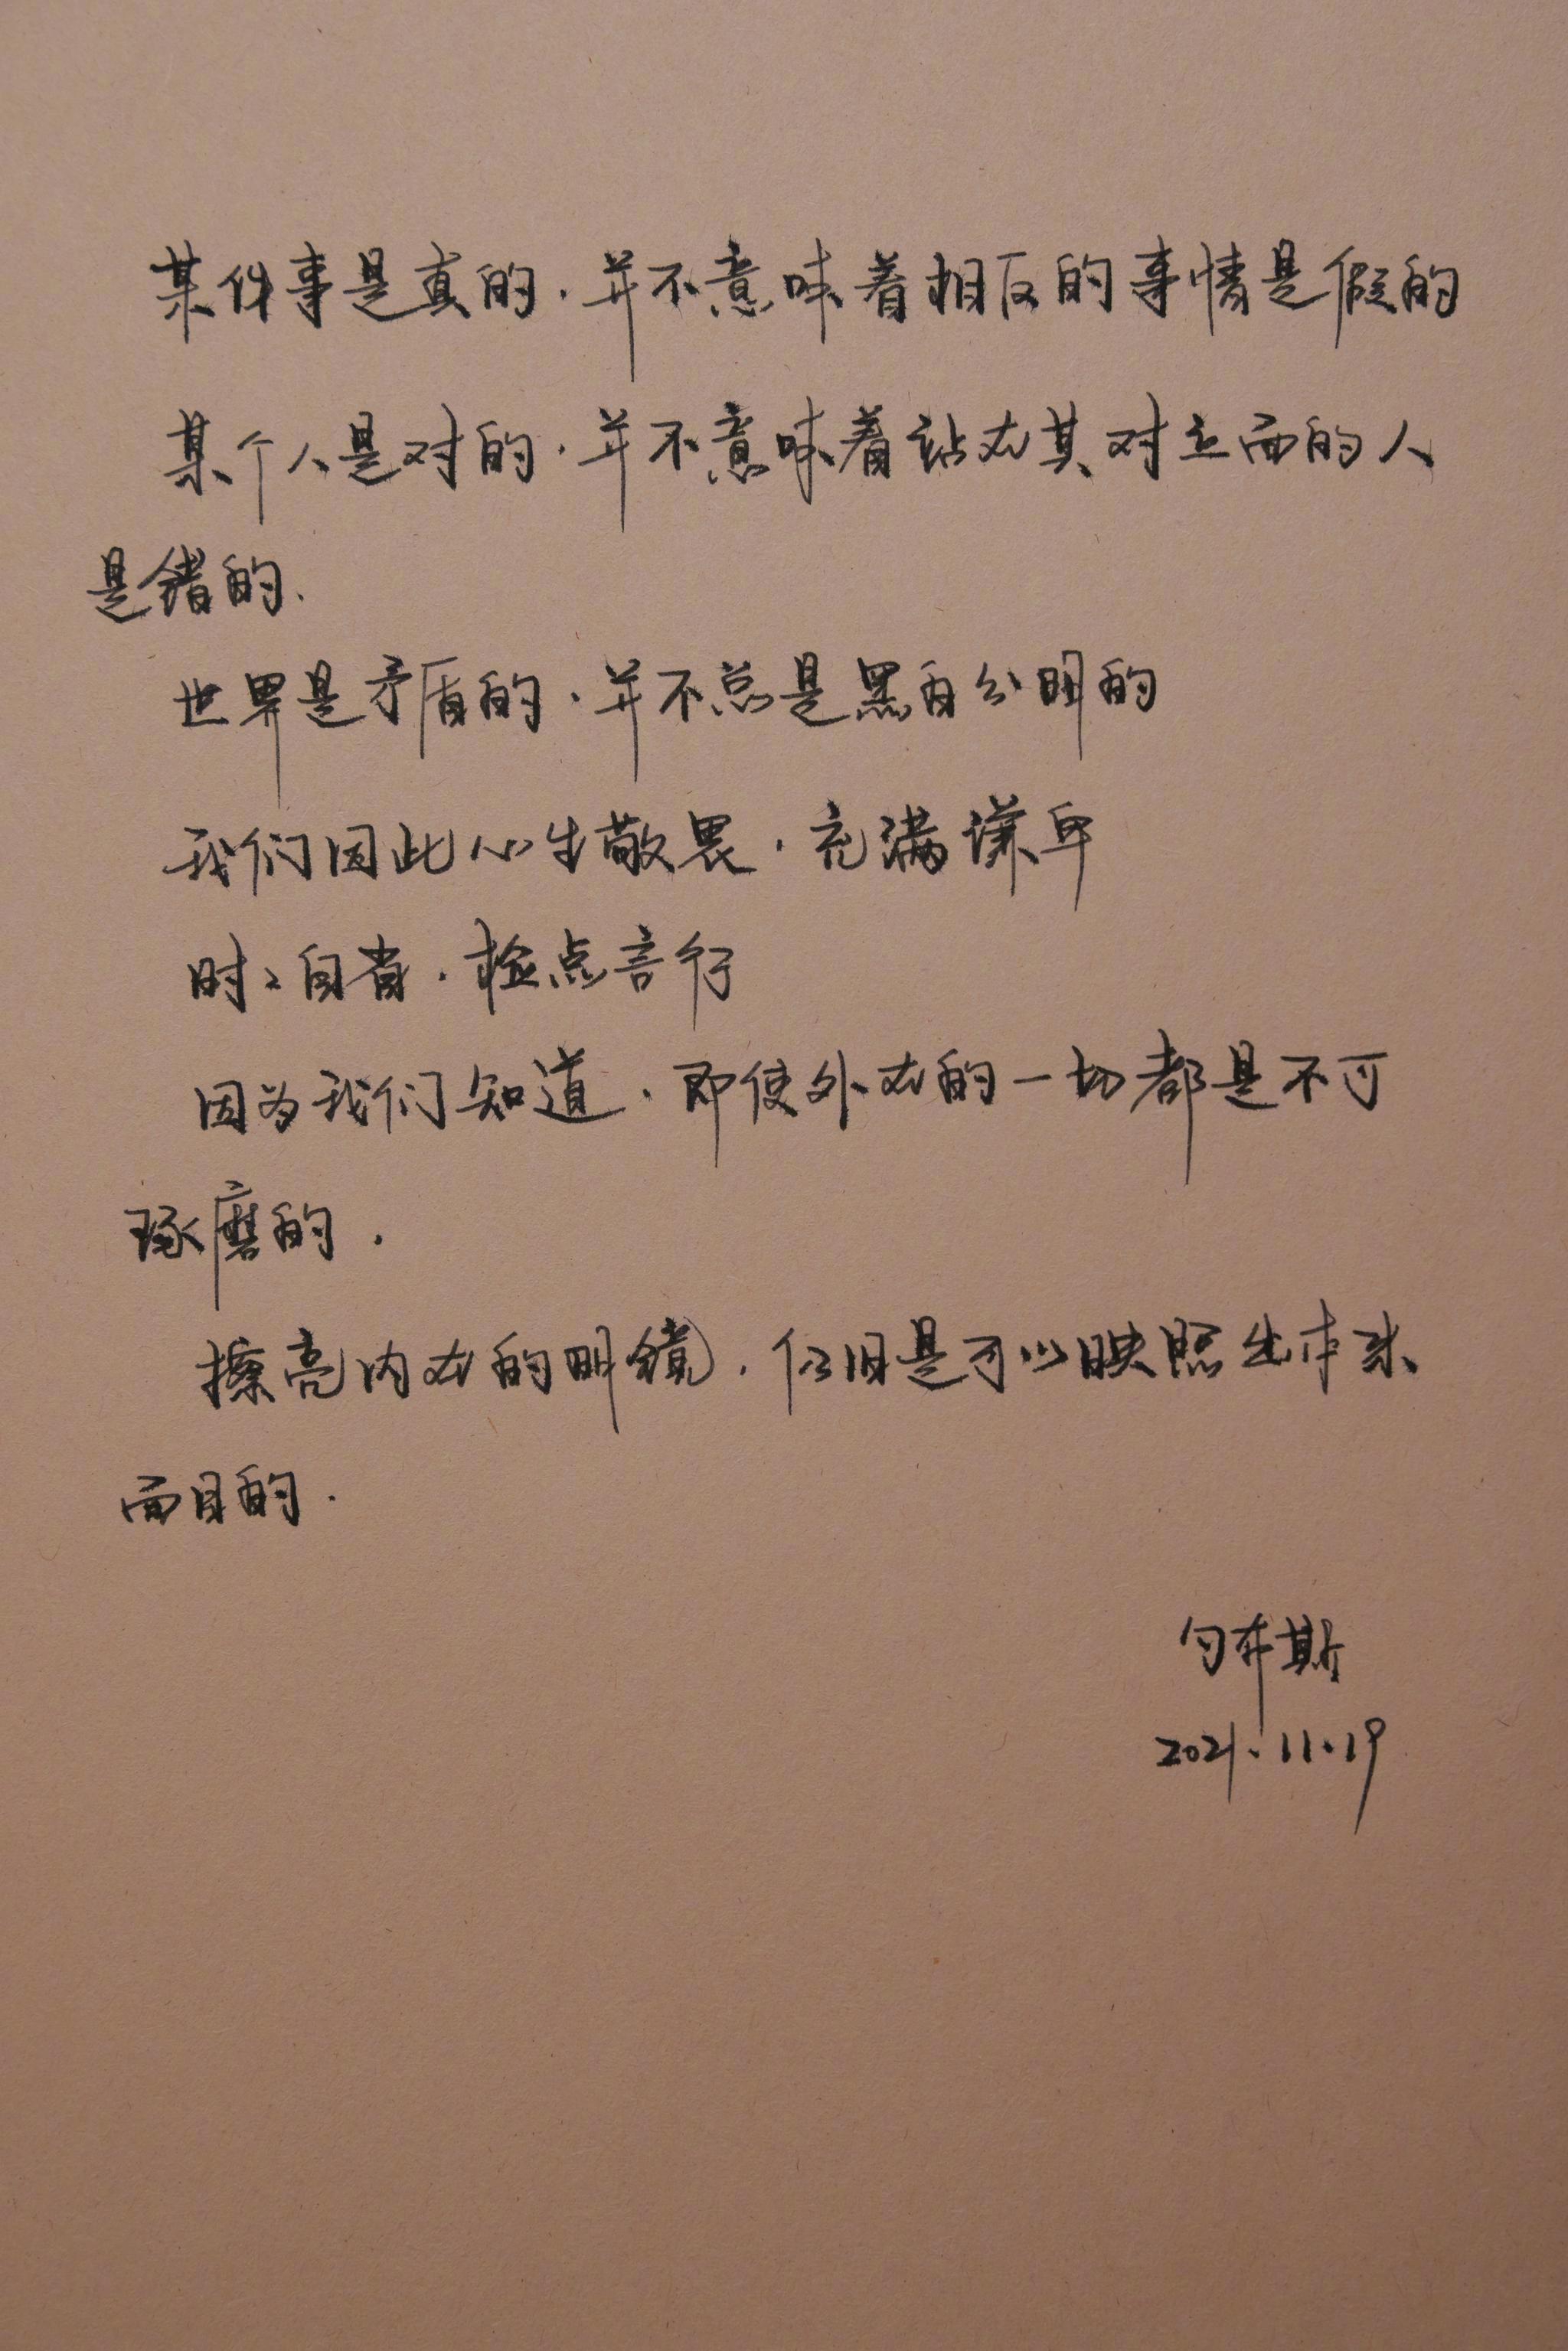 某件事是真的.并不意味着相反的事情是假的
某个人是对的.并不意味着站在其对立面的人
是错的.
世界是矛盾的.并不总是黑白分明的
我们因此心生敬畏.充满谦卑
时々自省.检点言行
因为我们知道.即使外在的一切都是不可
琢磨的.
擦亮内在的明镜.仍旧是可以映照出本来
面目的.
勾布斯
2021.11.19